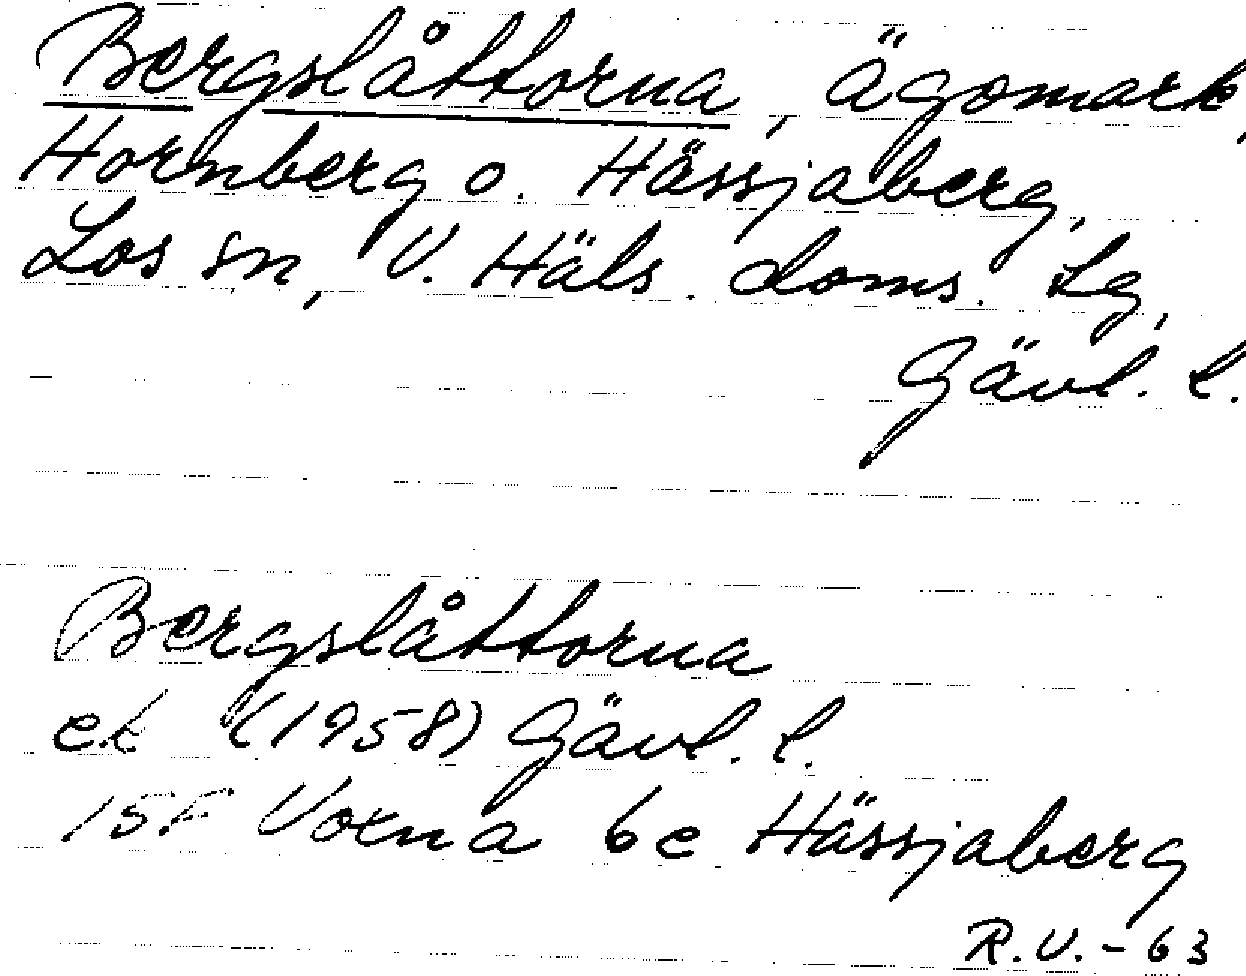 Bergslåttorna, ägomark,
Hornberg o. Hässjaberg,
Los sn, V. Häls. doms. lg,
Gävl. l.
Bergslåttorna
ek (1958) Gävl. l.
15F Voxna 6e Hässjaberg
R.V.-63